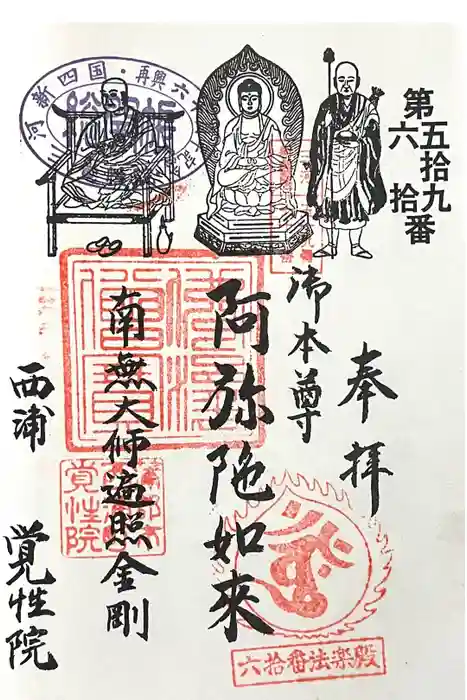 第五拾九
六拾番
奉拝
御本尊
阿弥陀如来
南無大师遍照金剛
西浦 覚性院
河新四国・再興六
覚性院
六拾番法楽殿